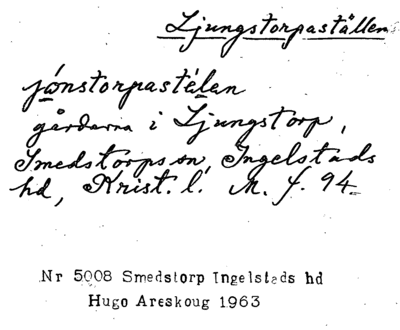 Ljungstorpaställen
jónstorpastélan
gårdarna i Ljungstorp,
Smedstorps sn, Ingelstads
hd, Krist. l. M. f. 94
Nr 5008 Smedstorp Ingelstads hd
Hugo Areskoug 1963